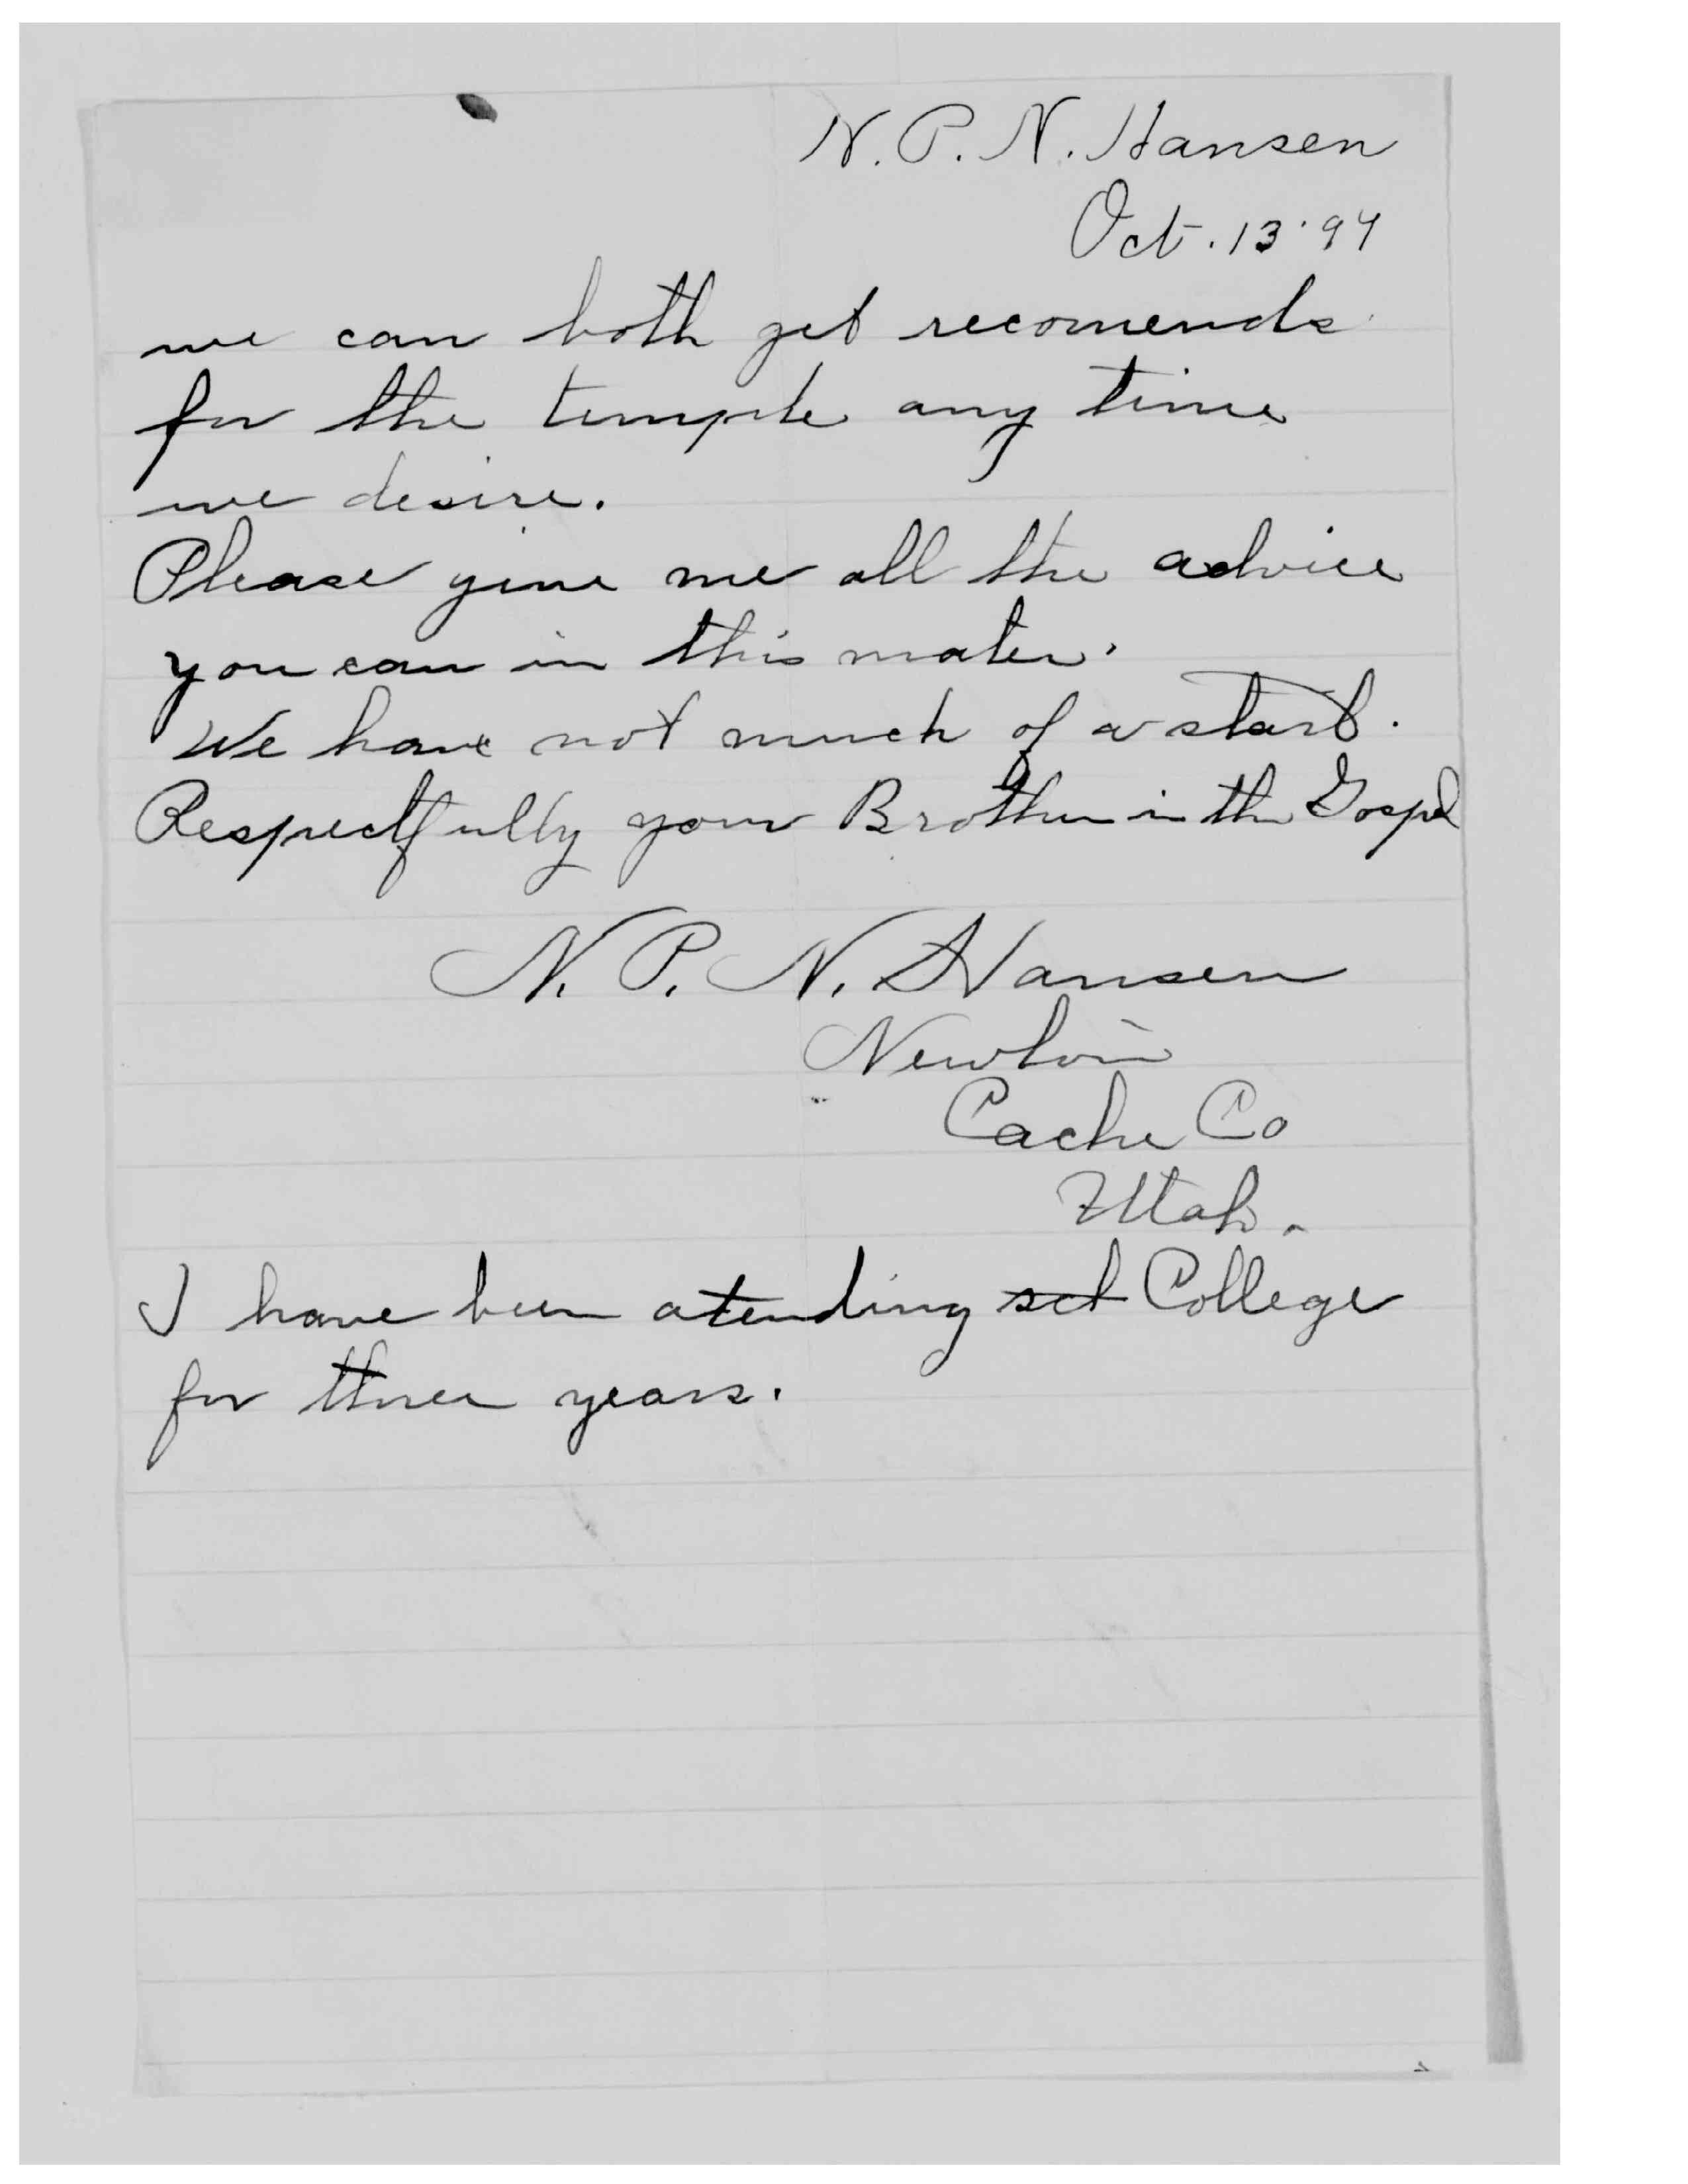 N. P. N. Hansen
Oct. 13 '94
we can both get recomends
for the temple any time
we desire.
Please give me all the advice
you can in this mater.
We have not much of a start.
Respectfully your Brother in the Gospel
N. P. N. Hansen
Newton
Cache Co
Utah.
I have been atending sch College
for three years.